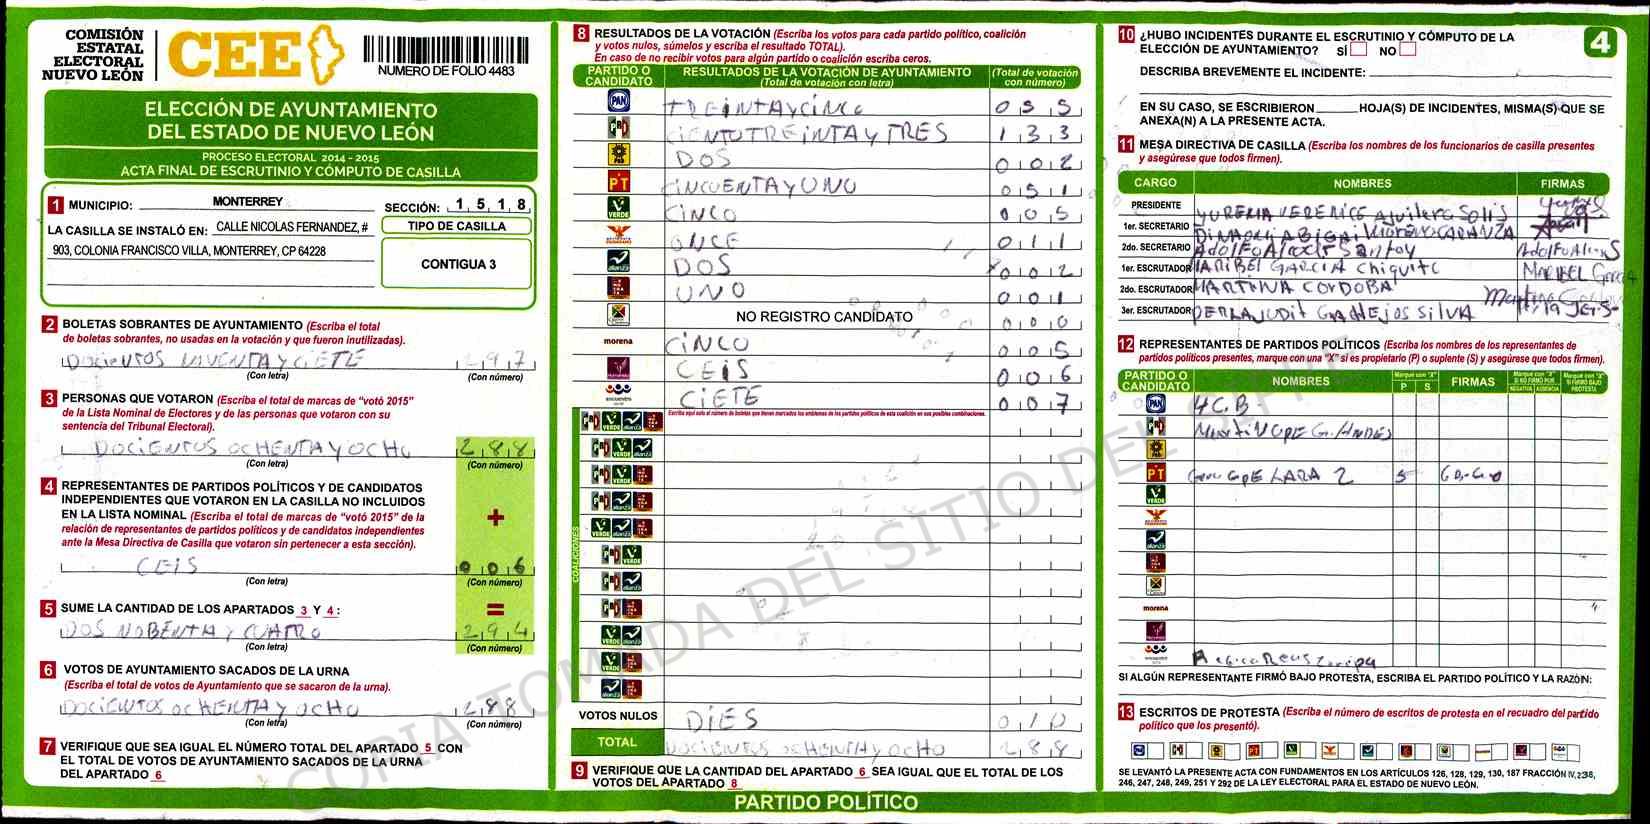 COMISIÓN
ESTATAL
ELECTORAL
NUEVO LEÓN
CEE
NUMERO DE FOLIO 4483
ELECCIÓN DE AYUNTAMIENTO
DEL ESTADO DE NUEVO LEÓN
PROCESO ELECTORAL 2014 - 2015
ACTA FINAL DE ESCRUTINIO Y CÓMPUTO DE CASILLA
1 MUNICIPIO: MONTERREY SECCIÓN: 1 5 1 8
LA CASILLA SE INSTALÓ EN: CALLE NICOLAS FERNANDEZ, #
903, COLONIA FRANCISCO VILLA, MONTERREY, CP 64228
TIPO DE CASILLA
CONTIGUA 3
2 BOLETAS SOBRANTES DE AYUNTAMIENTO (Escriba el total
de boletas sobrantes, no usadas en la votación y que fueron inutilizadas).
DOCIENTOS NOVENTA Y CIETE 297
(Con letra) (Con número)
3 PERSONAS QUE VOTARON (Escriba el total de marcas de “votó 2015”
de la Lista Nominal de Electores y de las personas que votaron con su
sentencia del Tribunal Electoral).
DOCIENTOS OCHENTA Y OCHO 288
(Con letra) (Con número)
4 REPRESENTANTES DE PARTIDOS POLÍTICOS Y DE CANDIDATOS
INDEPENDIENTES QUE VOTARON EN LA CASILLA NO INCLUIDOS
EN LA LISTA NOMINAL (Escriba el total de marcas de “votó 2015” de la
relación de representantes de partidos políticos y de candidatos independientes
ante la Mesa Directiva de Casilla que votaron sin pertenecer a esta sección).
+
CEIS 006
(Con letra) (Con número)
5 SUME LA CANTIDAD DE LOS APARTADOS 3 Y 4: =
DOS NOBENTA Y CUATRO 294
(Con letra) (Con número)
6 VOTOS DE AYUNTAMIENTO SACADOS DE LA URNA
(Escriba el total de votos de Ayuntamiento que se sacaron de la urna).
DOCIENTOS OCHENTA Y OCHO 288
(Con letra) (Con número)
7 VERIFIQUE QUE SEA IGUAL EL NÚMERO TOTAL DEL APARTADO 5 CON
EL TOTAL DE VOTOS DE AYUNTAMIENTO SACADOS DE LA URNA
DEL APARTADO 6
8 RESULTADOS DE LA VOTACIÓN (Escriba los votos para cada partido político, coalición
y votos nulos, súmelos y escriba el resultado TOTAL).
En caso de no recibir votos para algún partido o coalición escriba ceros.
PARTIDO O CANDIDATO RESULTADOS DE LA VOTACIÓN DE AYUNTAMIENTO (Total de votación con letra) (Total de votación con número)
PAN TREINTA Y CINCO 035
PRI CIENTO TREINTA Y TRES 133
PRD DOS 002
PT CINCUENTA Y UNO 051
VERDE CINCO 005
ONCE 011
alianza DOS 002
UNO 001
NO REGISTRO CANDIDATO 000
morena CINCO 005
CEIS 006
CIETE 007
Escriba aquí solo el número de boletas que tienen marcados los emblemas de los partidos políticos de esta coalición en sus posibles combinaciones.
COALICIONES
VOTOS NULOS DIES 010
TOTAL DOCIENTOS OCHENTA Y OCHO 288
9 VERIFIQUE QUE LA CANTIDAD DEL APARTADO 6 SEA IGUAL QUE EL TOTAL DE LOS
VOTOS DEL APARTADO 8
PARTIDO POLÍTICO
10 ¿HUBO INCIDENTES DURANTE EL ESCRUTINIO Y CÓMPUTO DE LA
ELECCIÓN DE AYUNTAMIENTO? SÍ NO
4
DESCRIBA BREVEMENTE EL INCIDENTE:
EN SU CASO, SE ESCRIBIERON HOJA(S) DE INCIDENTES, MISMA(S) QUE SE
ANEXA(N) A LA PRESENTE ACTA.
11 MESA DIRECTIVA DE CASILLA (Escriba los nombres de los funcionarios de casilla presentes
y asegúrese que todos firmen).
CARGO NOMBRES FIRMAS
PRESIDENTE YURENIA VERENICE Aguilera Solis
1er. SECRETARIO
2do. SECRETARIO Adolfo
1er. ESCRUTADOR MARIBEL GARCIA Chiquito MARIBEL García
2do. ESCRUTADOR MARTINA CORDOBA Martina
3er. ESCRUTADOR PERLA JUDIT Gallejos SILVA
12 REPRESENTANTES DE PARTIDOS POLÍTICOS (Escriba los nombres de los representantes de
partidos políticos presentes, marque con una "X" si es propietario (P) o suplente (S) y asegúrese que todos firmen).
PARTIDO O CANDIDATO NOMBRES Marque con "X" P S FIRMAS Marque con "X" SI NO FIRMÓ POR: NEGATIVA AUSENCIA Marque con "X" SI FIRMÓ BAJO PROTESTA
PAN
PRI
PRD
PT LARA S
VERDE
alianza
morena
SI ALGÚN REPRESENTANTE FIRMÓ BAJO PROTESTA, ESCRIBA EL PARTIDO POLÍTICO Y LA RAZÓN:
13 ESCRITOS DE PROTESTA (Escriba el número de escritos de protesta en el recuadro del partido
político que los presentó).
SE LEVANTÓ LA PRESENTE ACTA CON FUNDAMENTOS EN LOS ARTÍCULOS 126, 128, 129, 130, 187 FRACCIÓN IV, 238,
246, 247, 248, 249, 251 Y 292 DE LA LEY ELECTORAL PARA EL ESTADO DE NUEVO LEÓN.
COPIA TOMADA DEL SITIO DEL SIPRE